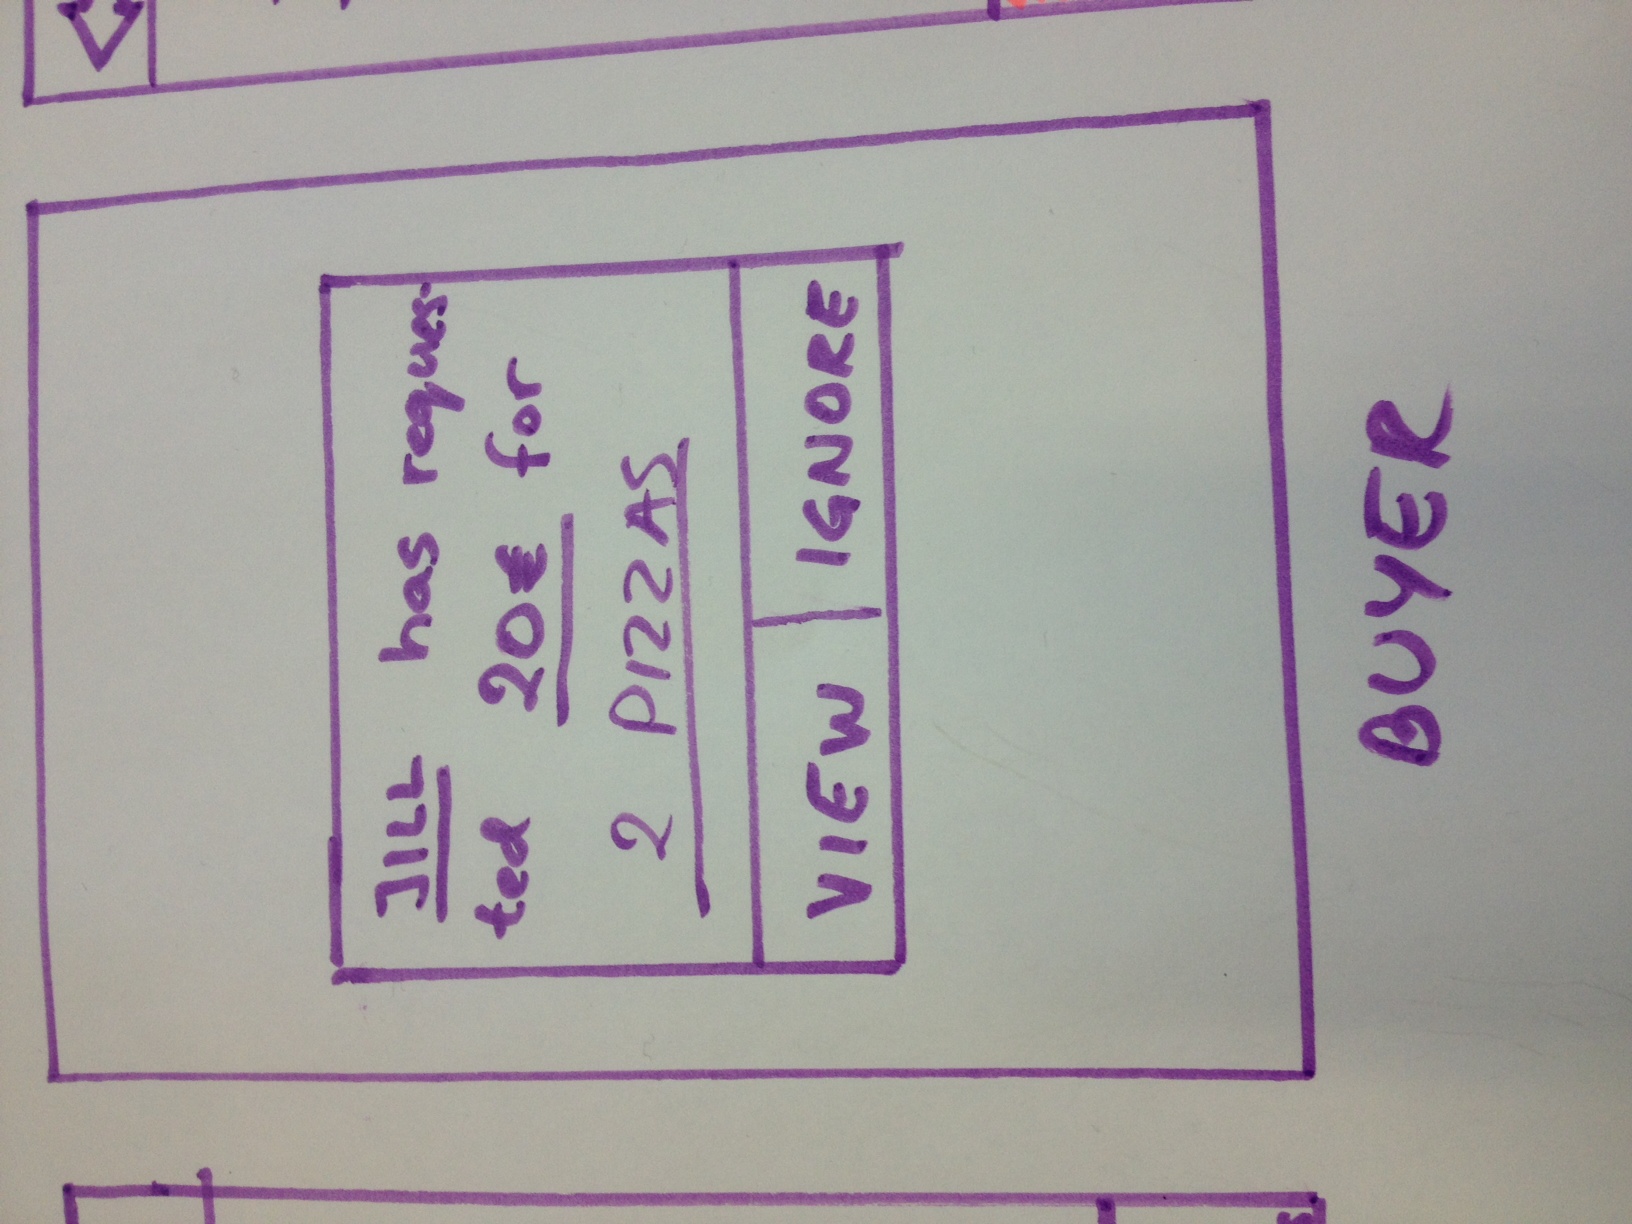 JILL has reques-
ted 20€ for
2 PIZZAS
VIEW IGNORE
BUYER